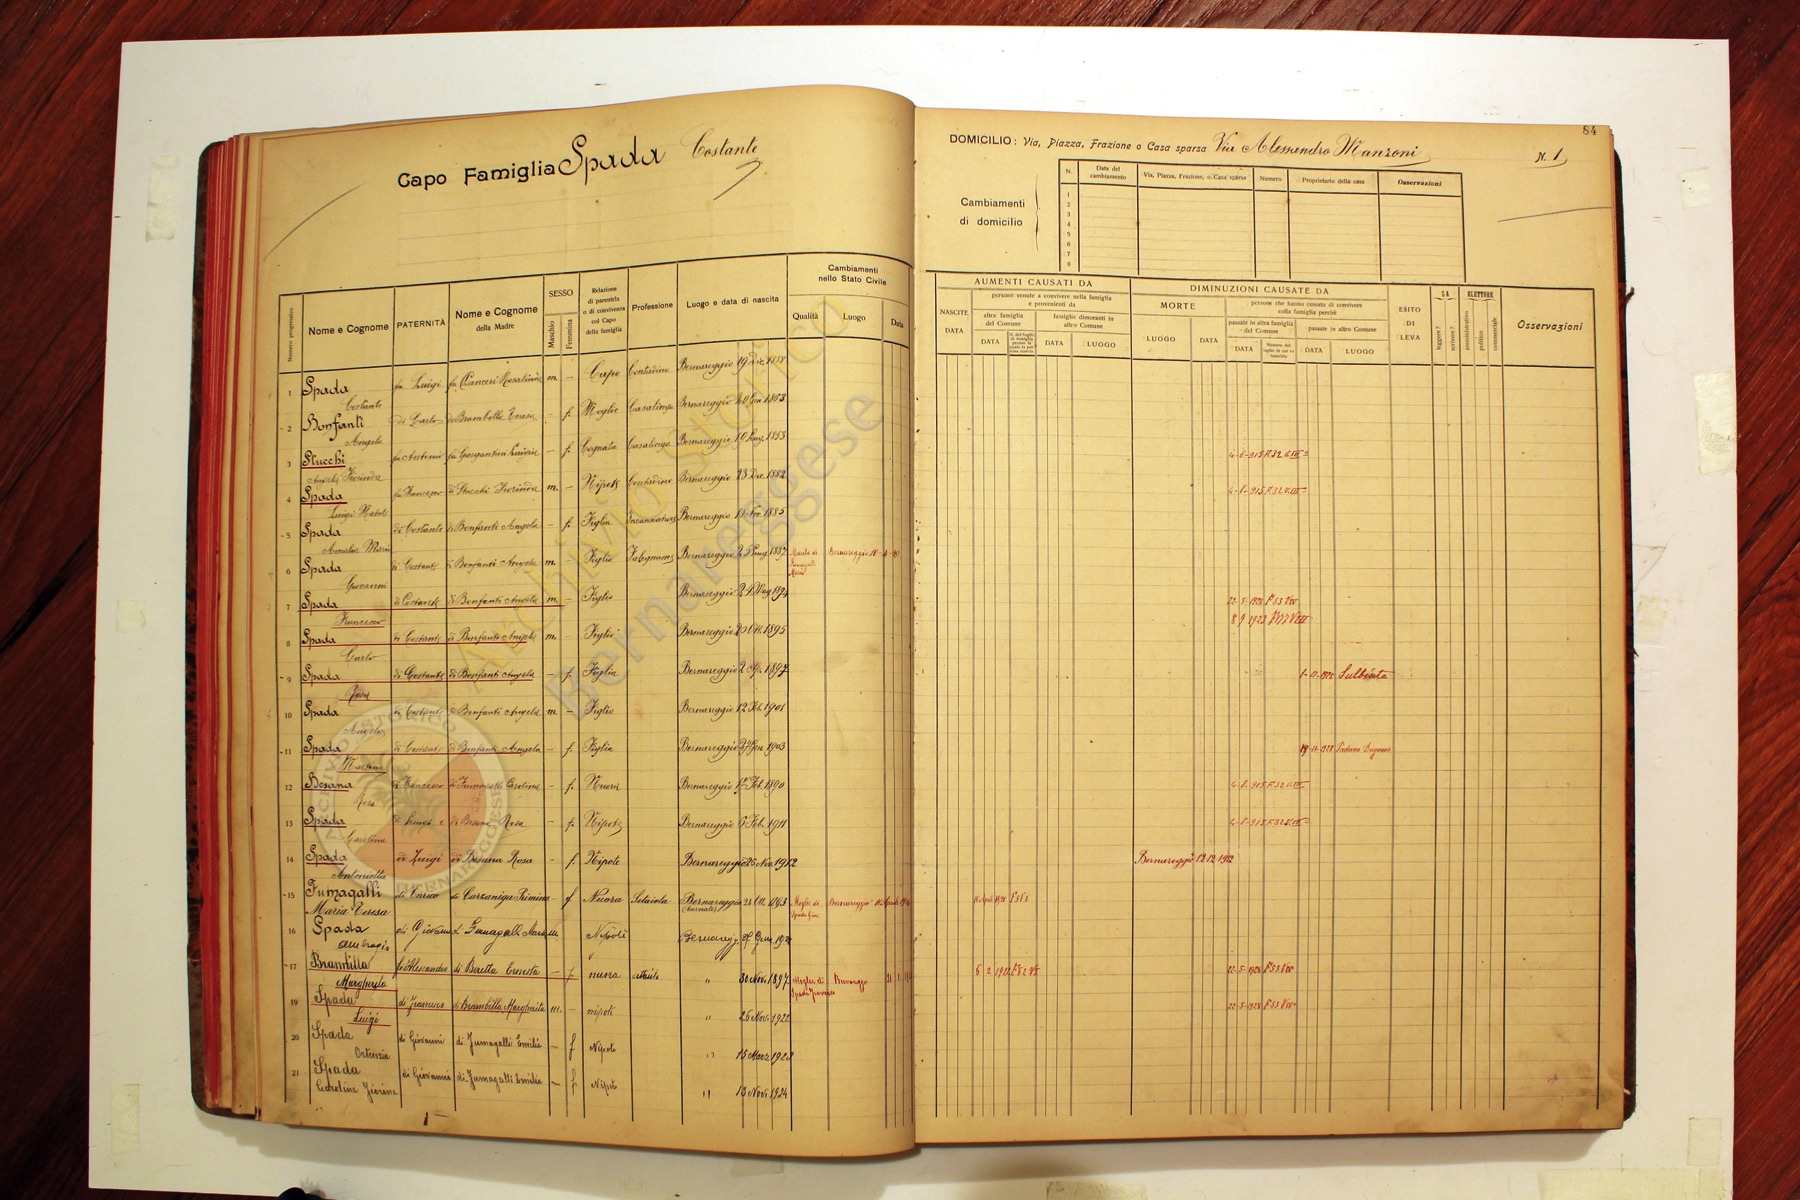 Capo Famiglia Spada Costante
84
DOMICILIO: Via, Piazza, Frazione o Casa sparsa Via Alessandro Manzoni N. 1
Cambiamenti di domicilio
N. Data del cambiamento Via, Piazza, Frazione, o Casa sparsa Numero Proprietario della casa Osservazioni
1
2
3
4
5
6
7
8
Numero progressivo Nome e Cognome PATERNITÀ Nome e Cognome della Madre SESSO Maschio Femmina Relazione di parentela o di convivenza col Capo della famiglia Professione Luogo e data di nascita Cambiamenti nello Stato Civile Qualità Luogo Data
NASCITE DATA AUMENTI CAUSATI DA persone venute a convivere nella famiglia e provenienti da altra famiglia del Comune DATA famiglie dimoranti in altro Comune DATA LUOGO
DIMINUZIONI CAUSATE DA MORTE LUOGO DATA persone che hanno cessato di convivere colla famiglia perchè passate in altra famiglia del Comune DATA passate in altro Comune DATA LUOGO
ESITO DI LEVA SA leggere? scrivere? ELETTORE amministrativo politico commerciale Osservazioni
1 Spada Costante fu Luigi fu Rosalinda m. – Capo Contadino Bernareggio 19 Dic. 1858
2 Bonfanti Angela di Carlo di Brambilla Teresa – f. Moglie Casalinga Bernareggio 20 Gen 1863
3 Stucchi Angela Fiorinda fu Antonio fu Gargantini Luigia – f. Cognata Casalinga Bernareggio 10 1853 4-8-915 F.32 V.III
4 Spada Luigi Natale fu Francesco di Stucchi Fiorinda m. – Nipote Contadino Bernareggio 23 Dic. 1882 4-8-915 F.32 V.III
5 Spada Maria di Costante di Bonfanti Angela – f. Figlia Incannatrice Bernareggio Nov. 1885
6 Spada Giovanni di Costante di Bonfanti Angela m. – Figlio Falegname Bernareggio 1887 Marito di Fumagalli Maria Bernareggio
7 Spada Francesco di Costante di Bonfanti Angela m. – Figlio Bernareggio 24 Mag 1894 22-5-1925 F53 VIII
8 9 1923
8 Spada Carlo di Costante di Bonfanti Angela m. – Figlio Bernareggio 20 Ott. 1895
9 Spada Rosa di Costante di Bonfanti Angela – f. Figlia Bernareggio 2 1897 1-11-1925 Sulbiate
10 Spada Angelo di Costante di Bonfanti Angela m. – Figlio Bernareggio 12 Feb. 1901
11 Spada Martina di Costante di Bonfanti Angela – f. Figlia Bernareggio 27 Gen 1903 19-11-1928 Paderno Dugnano
12 Besana Rosa di Francesco di Fumagalli Carolina – f. Nuora Bernareggio 17 Feb. 1890 4-8-915 F.32 V.III
13 Spada Carolina di Luigi e di Besana Rosa – f. Nipote Bernareggio 6 Feb. 1911 4-8-915 F.32 V.III
14 Spada Antonietta di Luigi di Besana Rosa – f. Nipote Bernareggio 26 Nov. 1912 Bernareggio 12.12.1912
15 Fumagalli Maria Teresa di Enrico di Carzaniga – f Nuora Setaiola Bernareggio 1893 Moglie di Spada Bernareggio
16 Spada Ambrogio di Giovanni di Fumagalli Maria m. Nipote Bernaregg
17 Brambilla Margherita fu Alessandro di Beretta Ernesta – f. nuora " 30 Nov. 1897 Moglie di Spada Francesco Bernareggio 6 2 1922 22-5-1925 F53 VIII
19 Spada Luigi di Francesco di Brambilla Margherita m. – nipote " 26 Nov. 1922 22-5-1925 F53 VIII
20 Spada Ortensia di Giovanni di Fumagalli Emilia – f Nipote " 15 Marz. 1923
21 Spada Carolina Fiorina di Giovanni di Fumagalli Emilia – f Nipote " 13 Nov. 1924
Archivio Storico Bernareggese
ARCHIVIO STORICO BERNAREGGESE